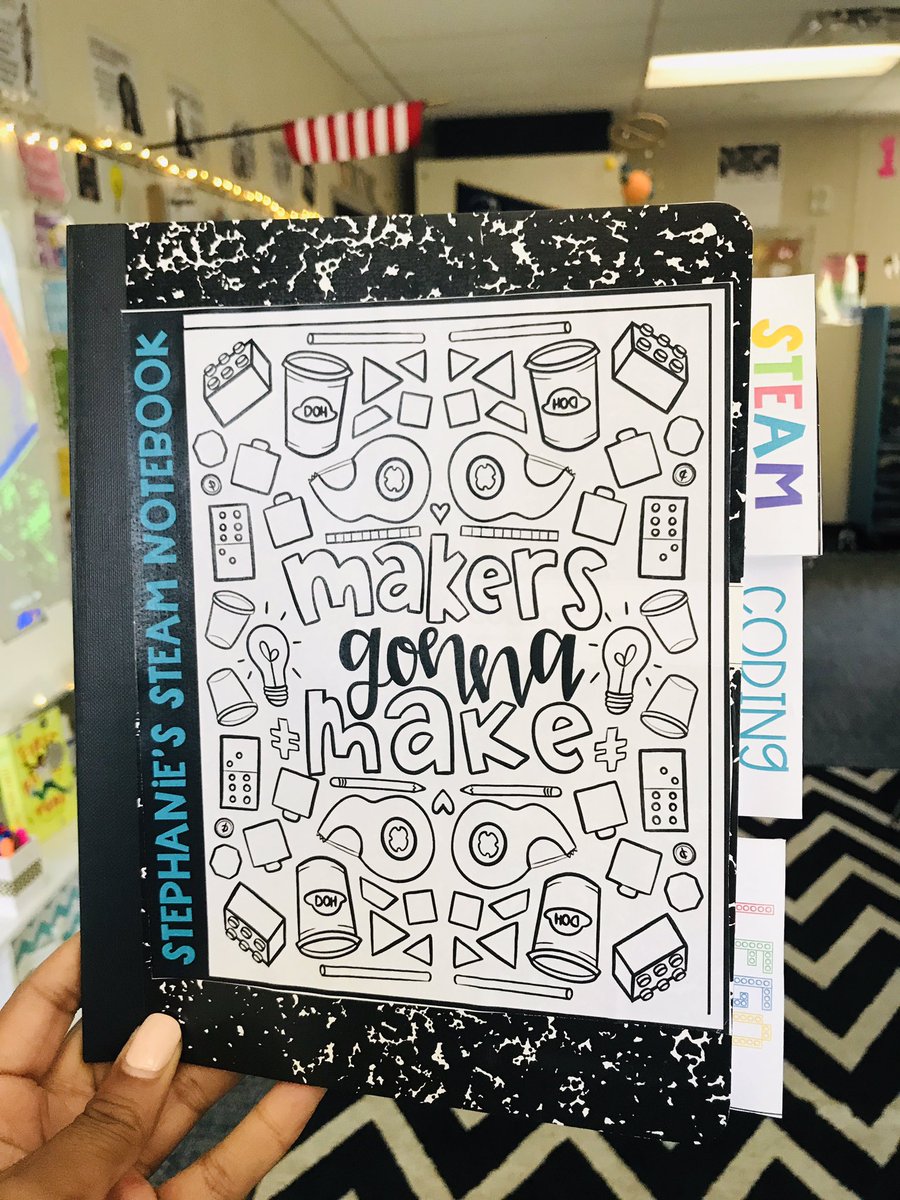 STEPHANIE'S STEAM NOTEBOOK
DOH
DOH
makers
gonna
make
DOH
DOH
STEAM
CODING
1